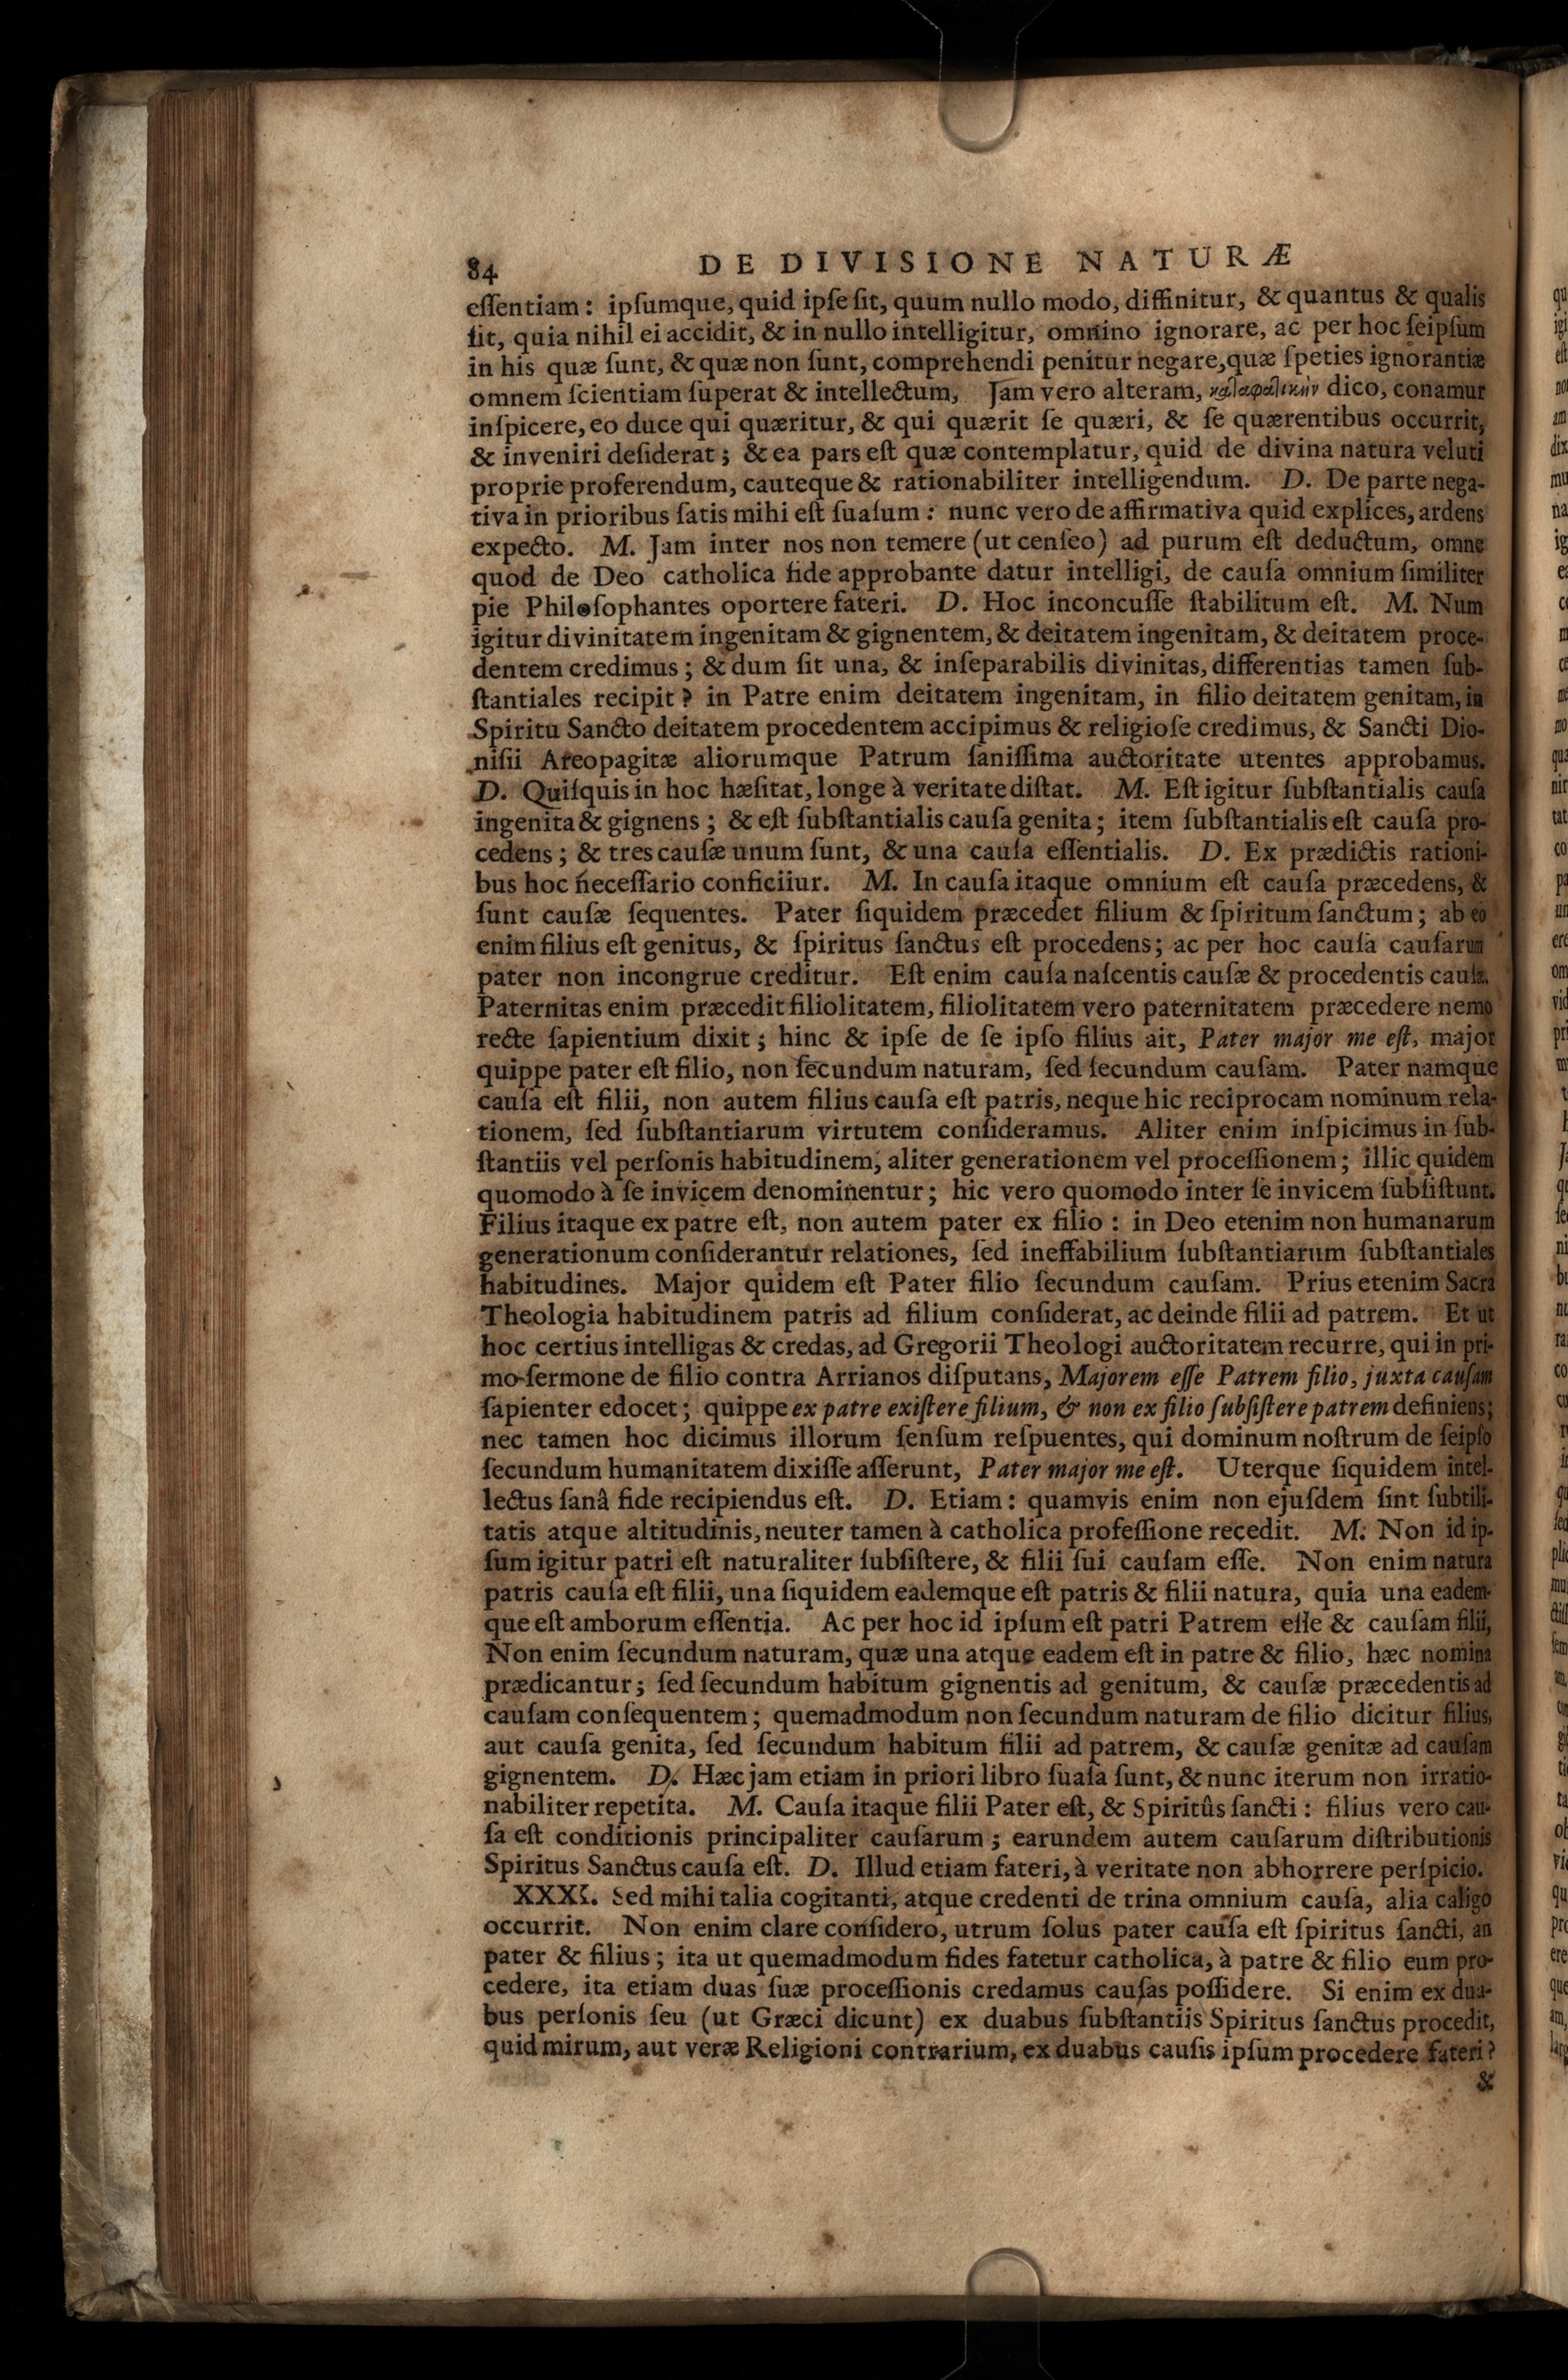 84 DE DIVISIONE NATURÆ
eſſentiam: ipſumque, quid ipſe ſit, quum nullo modo, diffinitur, & quantus & qualis
ſit, quia nihil ei accidit, & in nullo intelligitur, omnino ignorare, ac per hoc ſeipſum
in his quæ ſunt, & quæ non ſunt, comprehendi penitur negare, quæ ſpeties ignorantiæ
omnem ſcientiam ſuperat & intellectum, Jam vero alteram, καταφατικὴν dico, conamur
inſpicere, eo duce qui quæritur, & qui quærit ſe quæri, & ſe quærentibus occurrit,
& inveniri deſiderat; & ea pars eſt quæ contemplatur, quid de divina natura veluti
proprie proferendum, cauteque & rationabiliter intelligendum. D. De parte nega-
tiva in prioribus ſatis mihi eſt ſuaſum: nunc vero de affirmativa quid explices, ardens
expecto. M. Jam inter nos non temere (ut cenſeo) ad purum eſt deductum, omne
quod de Deo catholica fide approbante datur intelligi, de cauſa omnium ſimiliter
pie Philoſophantes oportere fateri. D. Hoc inconcuſſe ſtabilitum eſt. M. Num
igitur divinitatem ingenitam & gignentem, & deitatem ingenitam, & deitatem proce-
dentem credimus; & dum ſit una, & inſeparabilis divinitas, differentias tamen ſub-
ſtantiales recipit? in Patre enim deitatem ingenitam, in filio deitatem genitam, in
Spiritu Sancto deitatem procedentem accipimus & religioſe credimus, & Sancti Dio-
niſii Areopagitæ aliorumque Patrum ſaniſſima auctoritate utentes approbamus.
D. Quiſquis in hoc hæſitat, longe à veritate diſtat. M. Eſt igitur ſubſtantialis cauſa
ingenita & gignens; & eſt ſubſtantialis cauſa genita; item ſubſtantialis eſt cauſa pro-
cedens; & tres cauſæ unum ſunt, & una cauſa eſſentialis. D. Ex prædictis rationi-
bus hoc neceſſario conficiiur. M. In cauſa itaque omnium eſt cauſa præcedens, &
ſunt cauſæ ſequentes. Pater ſiquidem præcedet filium & ſpiritum ſanctum; ab eo
enim filius eſt genitus, & ſpiritus ſanctus eſt procedens; ac per hoc cauſa cauſarum
pater non incongrue creditur. Eſt enim cauſa naſcentis cauſæ & procedentis cauſæ.
Paternitas enim præcedit filiolitatem, filiolitatem vero paternitatem præcedere nemo
recte ſapientium dixit; hinc & ipſe de ſe ipſo filius ait, Pater major me eſt, major
quippe pater eſt filio, non ſecundum naturam, ſed ſecundum cauſam. Pater namque
cauſa eſt filii, non autem filius cauſa eſt patris, neque hic reciprocam nominum rela-
tionem, ſed ſubſtantiarum virtutem conſideramus. Aliter enim inſpicimus in ſub-
ſtantiis vel perſonis habitudinem, aliter generationem vel proceſſionem; illic quidem
quomodo à ſe invicem denominentur; hic vero quomodo inter ſe invicem ſubſiſtunt.
Filius itaque ex patre eſt, non autem pater ex filio: in Deo etenim non humanarum
generationum conſiderantur relationes, ſed ineffabilium ſubſtantiarum ſubſtantiales
habitudines. Major quidem eſt Pater filio ſecundum cauſam. Prius etenim Sacra
Theologia habitudinem patris ad filium conſiderat, ac deinde filii ad patrem. Et ut
hoc certius intelligas & credas, ad Gregorii Theologi auctoritatem recurre, qui in pri-
mo ſermone de filio contra Arrianos diſputans, Majorem eſſe Patrem filio, juxta cauſam
ſapienter edocet; quippe ex patre exiſtere filium, & non ex filio ſubſiſtere patrem definiens;
nec tamen hoc dicimus illorum ſenſum reſpuentes, qui dominum noſtrum de ſeipſo
ſecundum humanitatem dixiſſe aſſerunt, Pater major me eſt. Uterque ſiquidem intel-
lectus ſanâ fide recipiendus eſt. D. Etiam: quamvis enim non ejuſdem ſint ſubtili-
tatis atque altitudinis, neuter tamen à catholica profeſſione recedit. M. Non id ip-
ſum igitur patri eſt naturaliter ſubſiſtere, & filii ſui cauſam eſſe. Non enim natura
patris cauſa eſt filii, una ſiquidem eademque eſt patris & filii natura, quia una eadem-
que eſt amborum eſſentia. Ac per hoc id ipſum eſt patri Patrem eſſe & cauſam filii,
Non enim ſecundum naturam, quæ una atque eadem eſt in patre & filio, hæc nomina
prædicantur; ſed ſecundum habitum gignentis ad genitum, & cauſæ præcedentis ad
cauſam conſequentem; quemadmodum non ſecundum naturam de filio dicitur filius,
aut cauſa genita, ſed ſecundum habitum filii ad patrem, & cauſæ genitæ ad cauſam
gignentem. D. Hæc jam etiam in priori libro ſuaſa ſunt, & nunc iterum non irratio-
nabiliter repetita. M. Cauſa itaque filii Pater eſt, & Spiritûs ſancti: filius vero cau-
ſa eſt conditionis principaliter cauſarum; earundem autem cauſarum diſtributionis
Spiritus Sanctus cauſa eſt. D. Illud etiam fateri, à veritate non abhorrere perſpicio.
XXXI. Sed mihi talia cogitanti, atque credenti de trina omnium cauſa, alia caligo
occurrit. Non enim clare conſidero, utrum ſolus pater cauſa eſt ſpiritus ſancti, an
pater & filius; ita ut quemadmodum fides fatetur catholica, à patre & filio eum pro-
cedere, ita etiam duas ſuæ proceſſionis credamus cauſas poſſidere. Si enim ex dua-
bus perſonis ſeu (ut Græci dicunt) ex duabus ſubſtantiis Spiritus ſanctus procedit,
quid mirum, aut veræ Religioni contrarium, ex duabus cauſis ipſum procedere fateri?
&